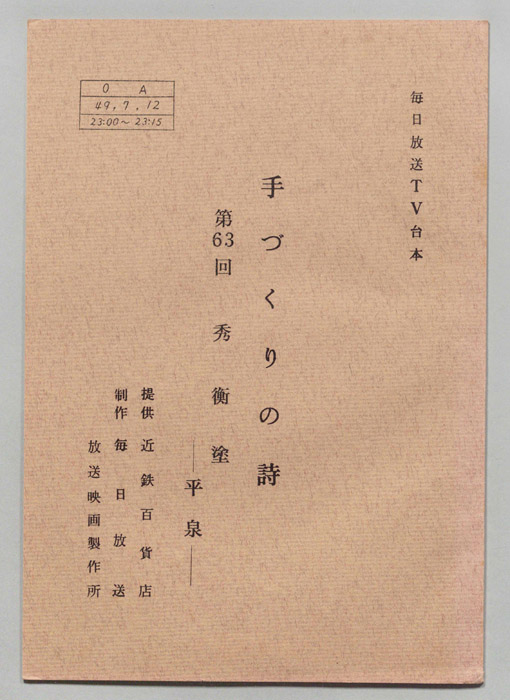 毎日放送TV台本
手づくりの詩
第63回 秀衡塗
―平泉―
提供 近鉄百貨店
制作 毎日放送
放送映画製作所
O A
49.7.12
23:00~23:15